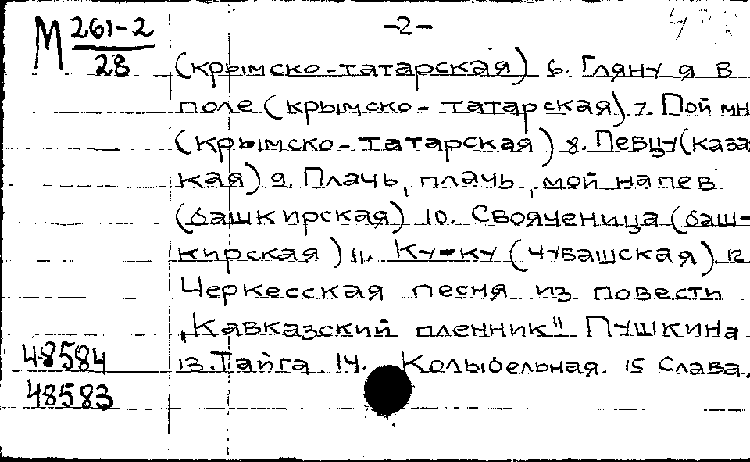 М 261-2
28
-2-
(крымско-татарская) 6. Гляну я в
поле (крымско-татарская). 7. Пой мн
(крымско-татарская) 8. Певцу (каза
кая) 9. Плачь, плачь, мой напев
(башкирская) 10. Свояченица (баш-
кирская) 11. Ку-ку (чувашская) 12
Черкесская песня из повести
"Кавказский пленник" Пушкина
48584 13. Тайга 14. Колыбельная. 15 Слава.
48583